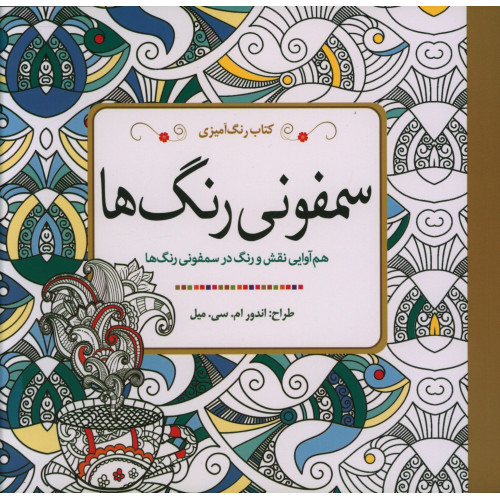 کتاب رنگ‌آمیزی
سمفونی رنگ‌ها
هم‌آوایی نقش و رنگ در سمفونی رنگ‌ها
طراح: اندور ام. سی. میل